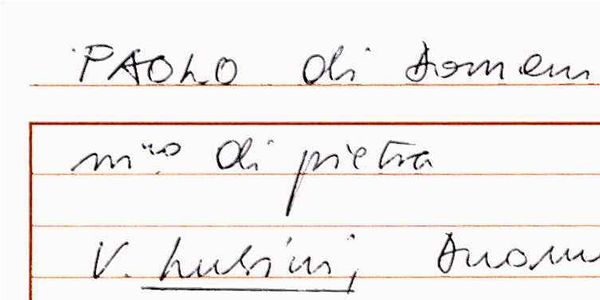 PAOLO di Domeni
m.ro di pietra
V. Lusini, Duomo